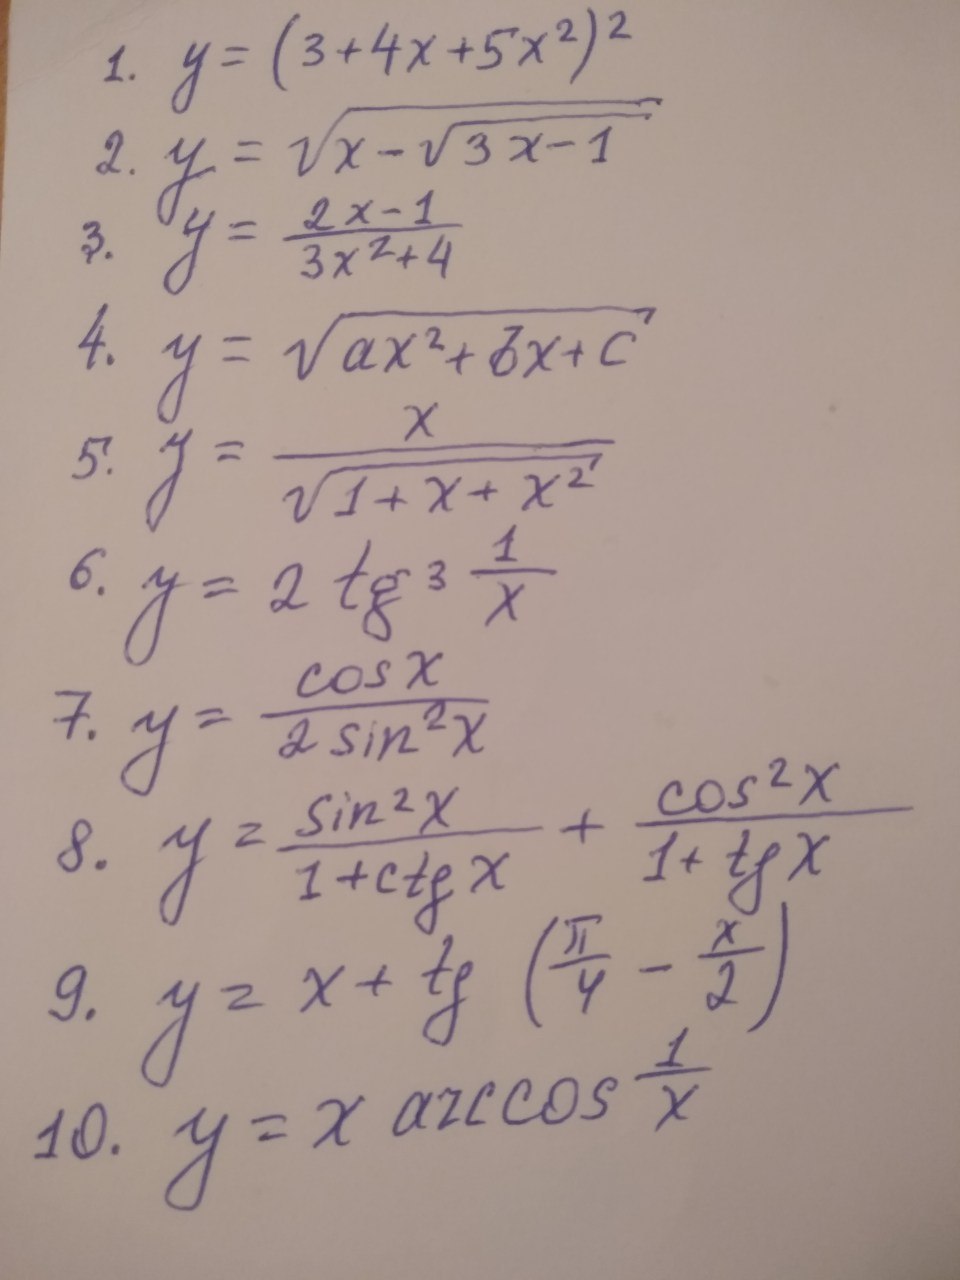 1. y = (3+4x+5x²)²
2. y = √(x-√(3x-1))
3. y = (2x-1)/(3x²+4)
4. y = √(ax²+bx+c)
5. y = x/√(1+x+x²)
6. y = 2 tg³ 1/x
7. y = cos x/(2 sin²x)
8. y = sin²x/(1+ctg x) + cos²x/(1+tg x)
9. y = x + tg (π/4 - x/2)
10. y = x arccos 1/x